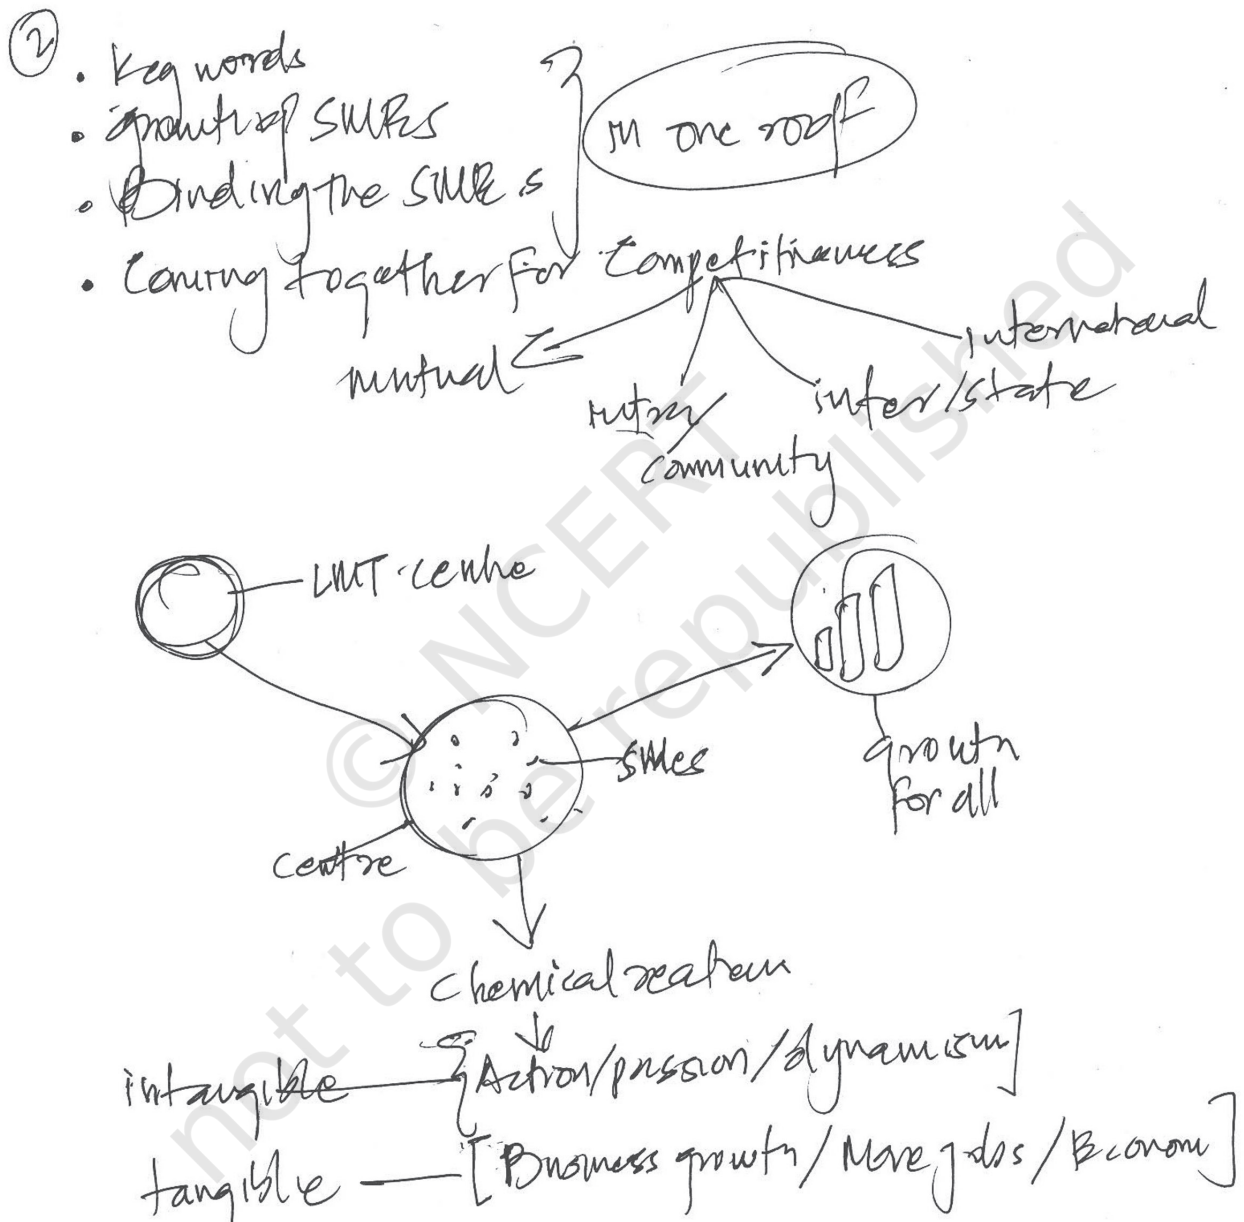 2
• Key words
• growth of SMEs
in one roof
• Binding the SMEs
• Coming together for Competitiveness
international
mutual
inter/state
intra/
community
LMT-centre
SMEs
growth
for all
centre
Chemical reaction
intangible
{Action/passion/dynamism]
tangible
[Business growth/More jobs/Econom]
© NCERT
not to be republished